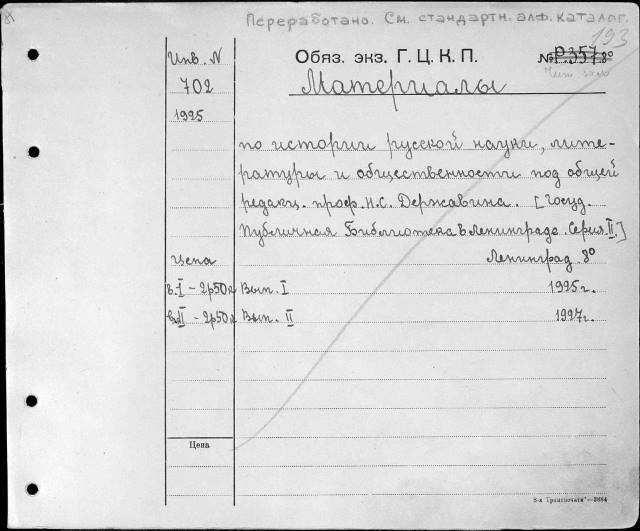 Переработано. См. стандартн. алф. каталог.
193
Инв. N Обяз. экз. Г. Ц. К. П. № Р.357 8º
702 Материалы
1925
по истории русской науки, лите-
ратуры и общественности под общей
редакц. проф. Н.С. Державина. [Госуд.
Публичная Библиотека в Ленинграде. Серия II.]
Цена Ленинград 8º
в.I – 2р50к Вып. I 1925 г.
в.II – 2р50к Вып. II 1927 г.
Цена
8-я Транспечати—3884